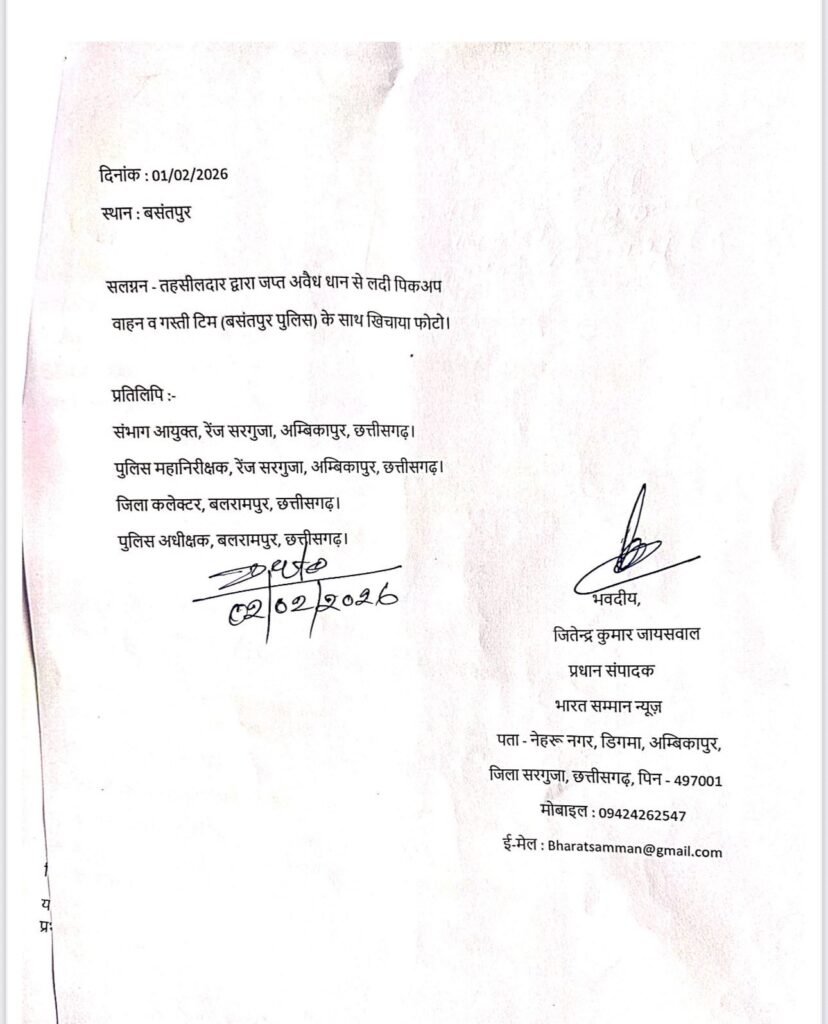 दिनांक : 01/02/2026
स्थान : बसंतपुर
सलग्नन - तहसीलदार द्वारा जप्त अवैध धान से लदी पिकअप
वाहन व गस्ती टिम (बसंतपुर पुलिस) के साथ खिचाया फोटो।
प्रतिलिपि :-
संभाग आयुक्त, रेंज सरगुजा, अम्बिकापुर, छत्तीसगढ़।
पुलिस महानिरीक्षक, रेंज सरगुजा, अम्बिकापुर, छत्तीसगढ़।
जिला कलेक्टर, बलरामपुर, छत्तीसगढ़।
पुलिस अधीक्षक, बलरामपुर, छत्तीसगढ़।
02/02/2026
भवदीय,
जितेन्द्र कुमार जायसवाल
प्रधान संपादक
भारत सम्मान न्यूज़
पता - नेहरू नगर, डिगमा, अम्बिकापुर,
जिला सरगुजा, छत्तीसगढ़, पिन - 497001
मोबाइल : 09424262547
ई-मेल : Bharatsamman@gmail.com